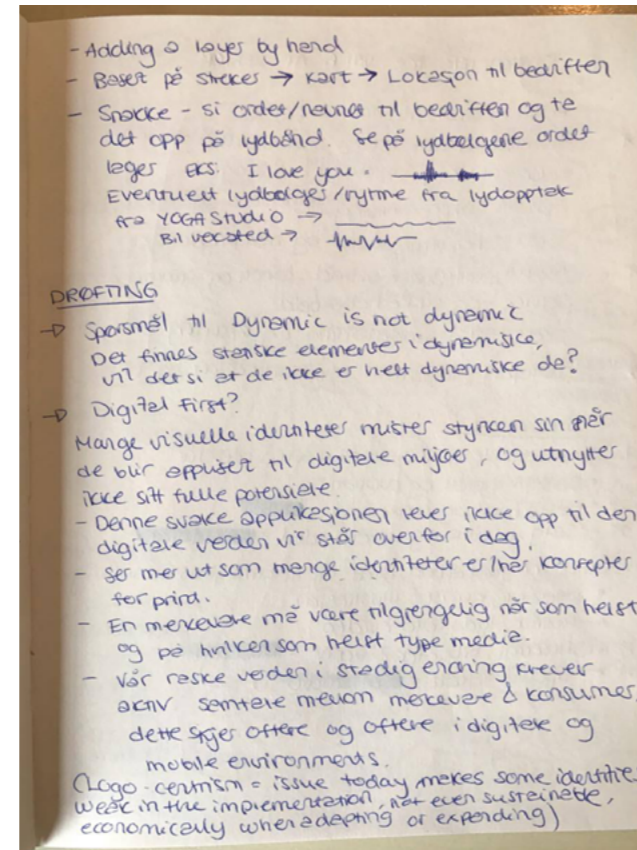 - Adding a layer by hand
- Basert på strekes → kart → Lokasjon til bedriften
- Snakke - si ordet/navnet til bedriften og ta
det opp på lydbånd. Se på lydbølgene ordet
lages eks: I love you.
Eventuelt lydbølges/rytme fra lydopptak
fra YOGA STUDIO →
Bilverksted →
DRØFTING
→ Spørsmål til Dynamic is not dynamic
Det finnes statiske elementer i dynamiske,
vil det si at de ikke er helt dynamiske de?
→ Digital First?
Mange visuelle identiteter mister styrken sin når
de blir applisert til digitale miljøer, og utnytter
ikke sitt fulle potensiale.
- Denne svake applikasjonen lever ikke opp til den
digitale verden vi står overfor i dag.
- Ser mer ut som mange identiteter er/har konsepter
for print.
- En merkevare må være tilgjengelig når som helst
og på hvilken som helst type media.
- Vår raske verden i stadig endring krever
aktiv samtale mellom merkevare & konsumer,
dette skjer oftere og oftere i digitale og
mobile environments.
(Logo-centrism = issue today makes some identities
weak in the implementation, not even sustainable,
economically when adapting or expanding)